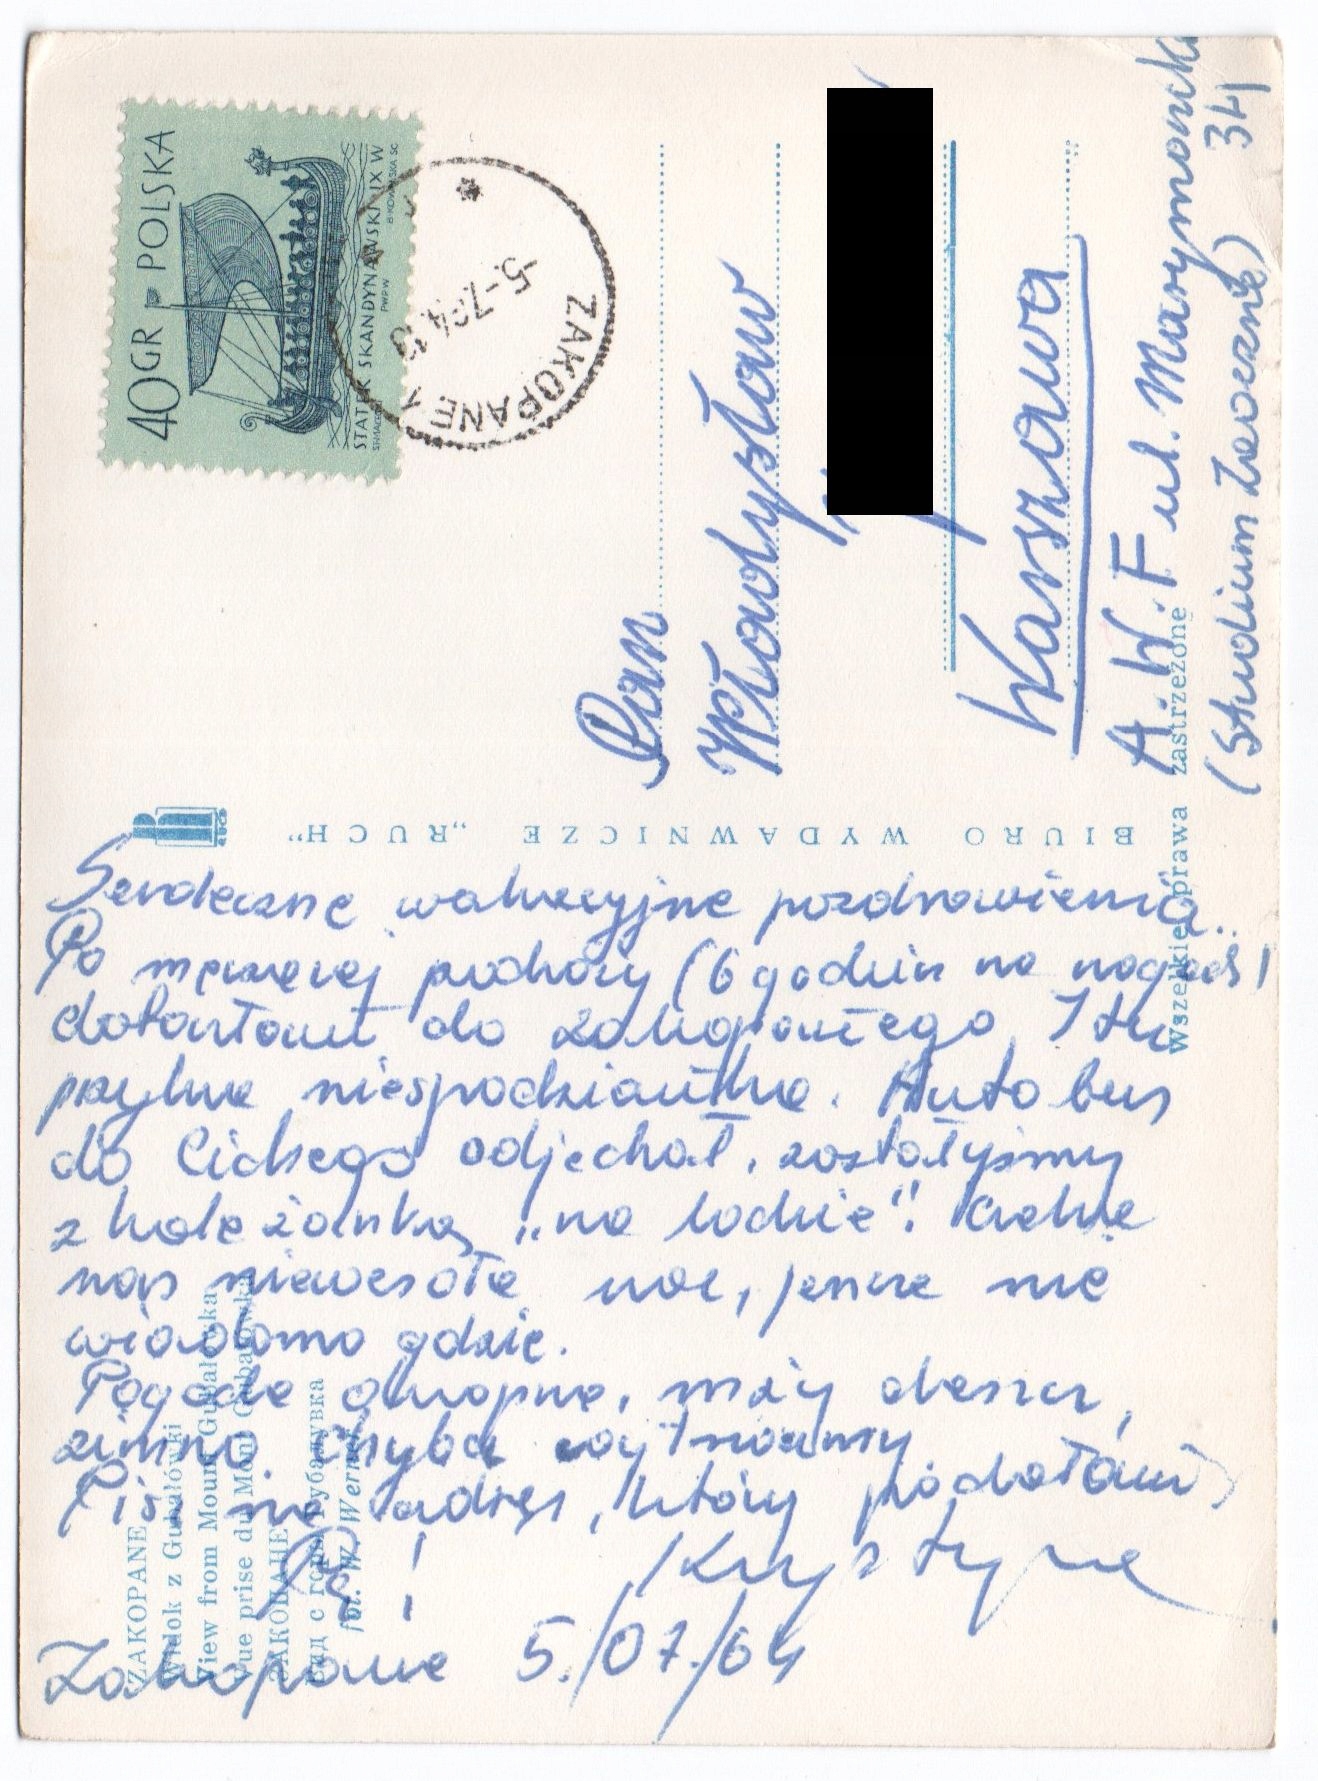 40 GR POLSKA
STATEK SKANDYNAWSKI IX W
PWPW
ZAKOPANE 1
-5.-7.64.13
Pan
Władysław
Warszawa
A.W.F ul. Marymoncka
34
(Studium Zaoczne)
RUCH
BIURO WYDAWNICZE „RUCH”
Wszelkie prawa zastrzeżone
Serdeczne wakacyjne pozdrowienia.
Po męczącej podróży (6 godzin na nogach)
dotarłam do Zakopanego. I tu
przykra niespodzianka. Autobus
do Cichego odjechał, zostałyśmy
z koleżanką „na lodzie”. Czeka
nas niewesoła noc, jeszcze nie
wiadomo gdzie.
Pogoda okropna, mży deszcz,
zimno. Chyba wytrwamy
Pisz na adres, który podałam
Pa! Krystyna
Zakopane 5./07./64
ZAKOPANE
Widok z Gubałówki
View from Mount Gubałówka
Vue prise du Mont Gubałówka
ЗАКОПАНЕ
Вид с горы Губалувка
fot. W. Werner